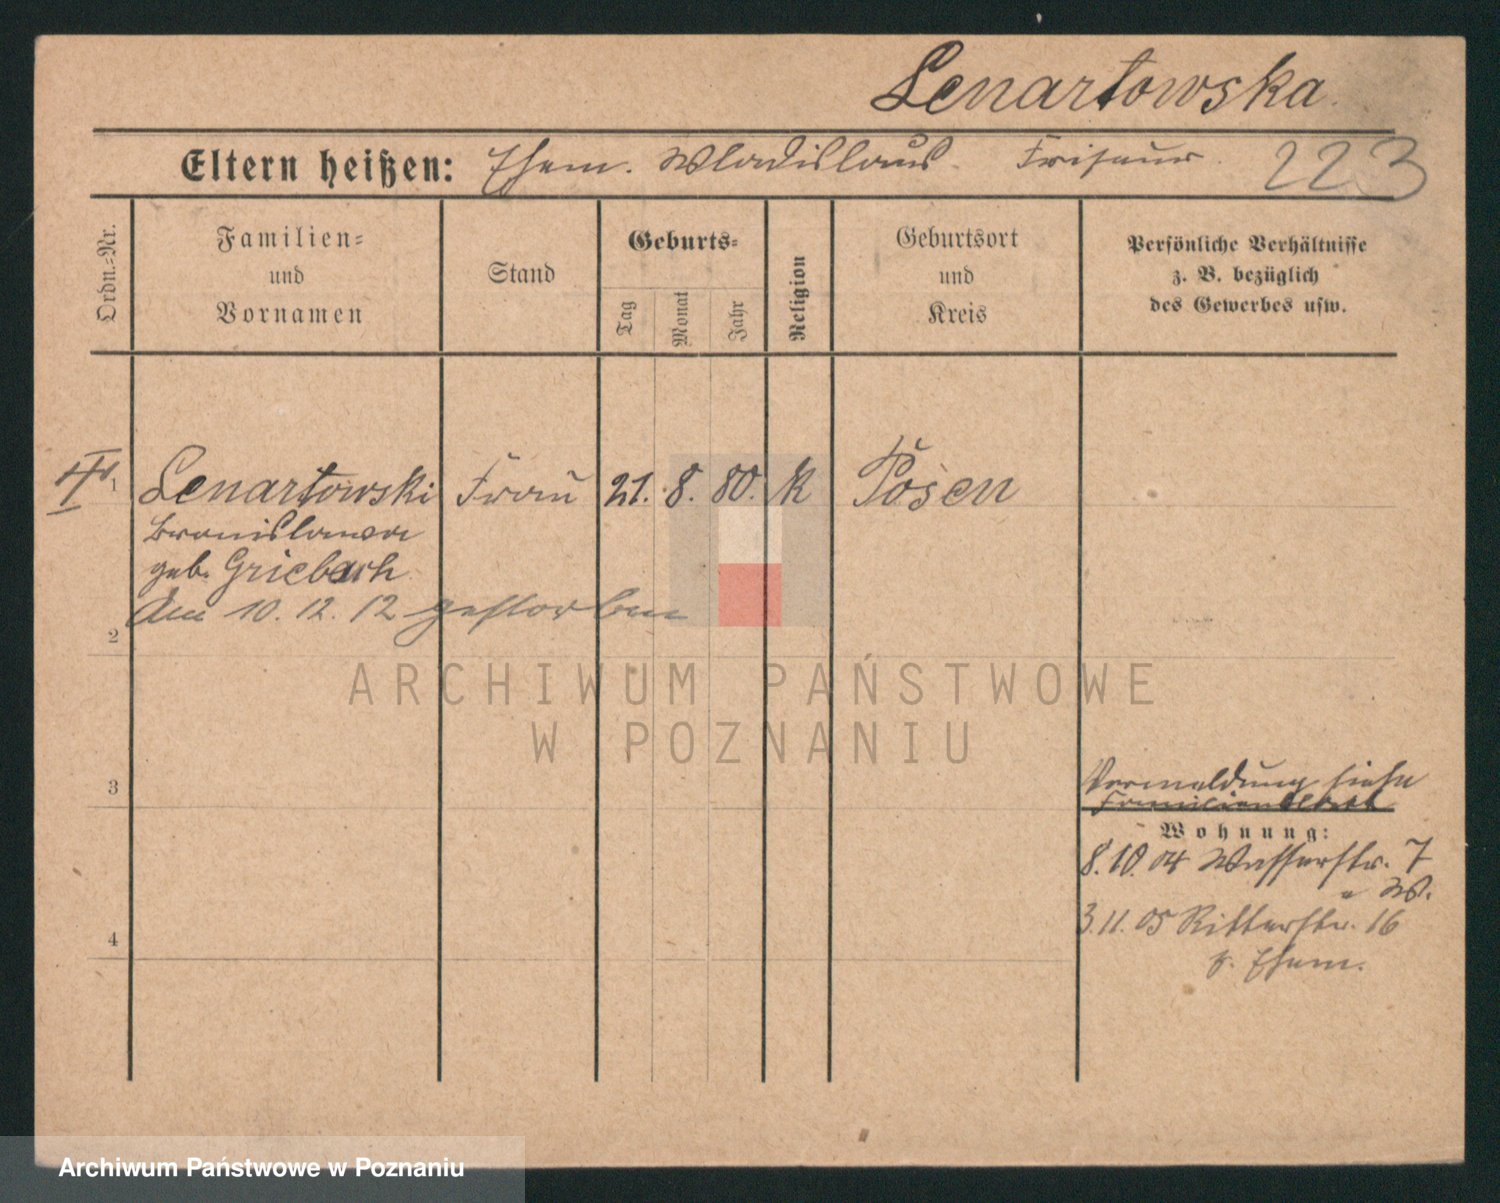 Lenartowska
Eltern heißen: Ehem. Wladislaus. Friseur. 223
Ordn.-Nr.
Familien-
und
Vornamen
Stand
Geburts-
Tag
Monat
Jahr
Religion
Geburtsort
und
Kreis
Persönliche Verhältnisse
z. B. bezüglich
des Gewerbes usw.
1 Lenartowski Frau 21. 8. 80. k Posen
Bronislawa
geb. Griebach
Am 10.12.12 gestorben
2
ARCHIWUM PAŃSTWOWE
W POZNANIU
3
Vermeldung siehe
Familienblatt
Wohnung:
8.10.04 Wasserstr. 7
W.
3.11.05 Ritterstr. 16
4
z. Ehem.
Archiwum Państwowe w Poznaniu